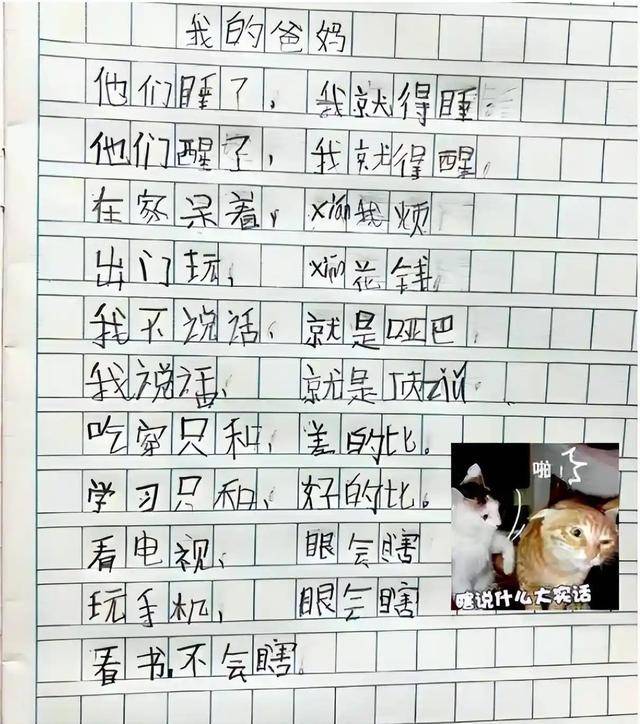 我的爸妈
他们睡了，我就得睡。
他们醒了，我就得醒。
在家呆着，xián我烦
出门玩，xián花钱。
我不说话，就是哑巴。
我说话，就是顶zuǐ。
吃穿只和，差的比。
学习只和，好的比。
看电视，眼会瞎
玩手机，眼会瞎
看书不会瞎。
啪！
瞎说什么大实话